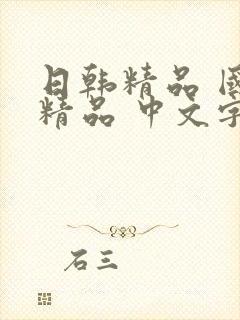 日韩精品
精品 中文字
石三